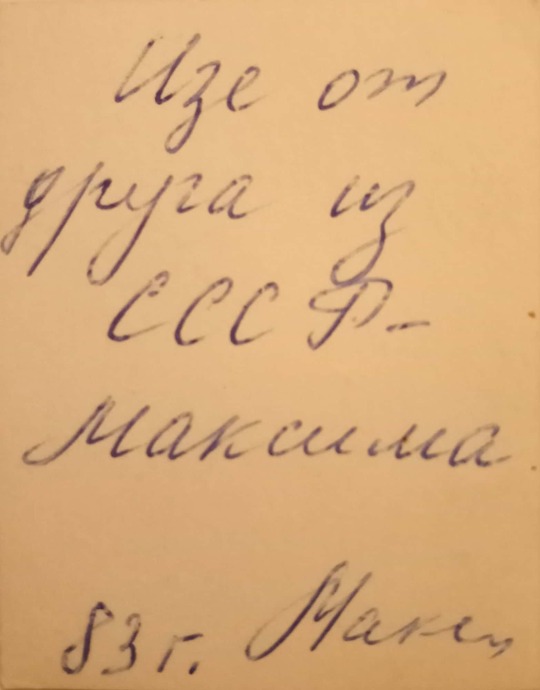 Изе от
друга из
СССР-
Максима
83 г. Макси